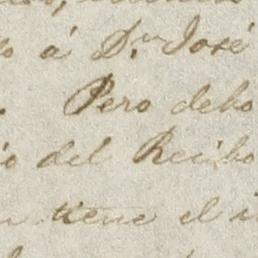 á D.n José
Pero debo
del Recibo
tiene el